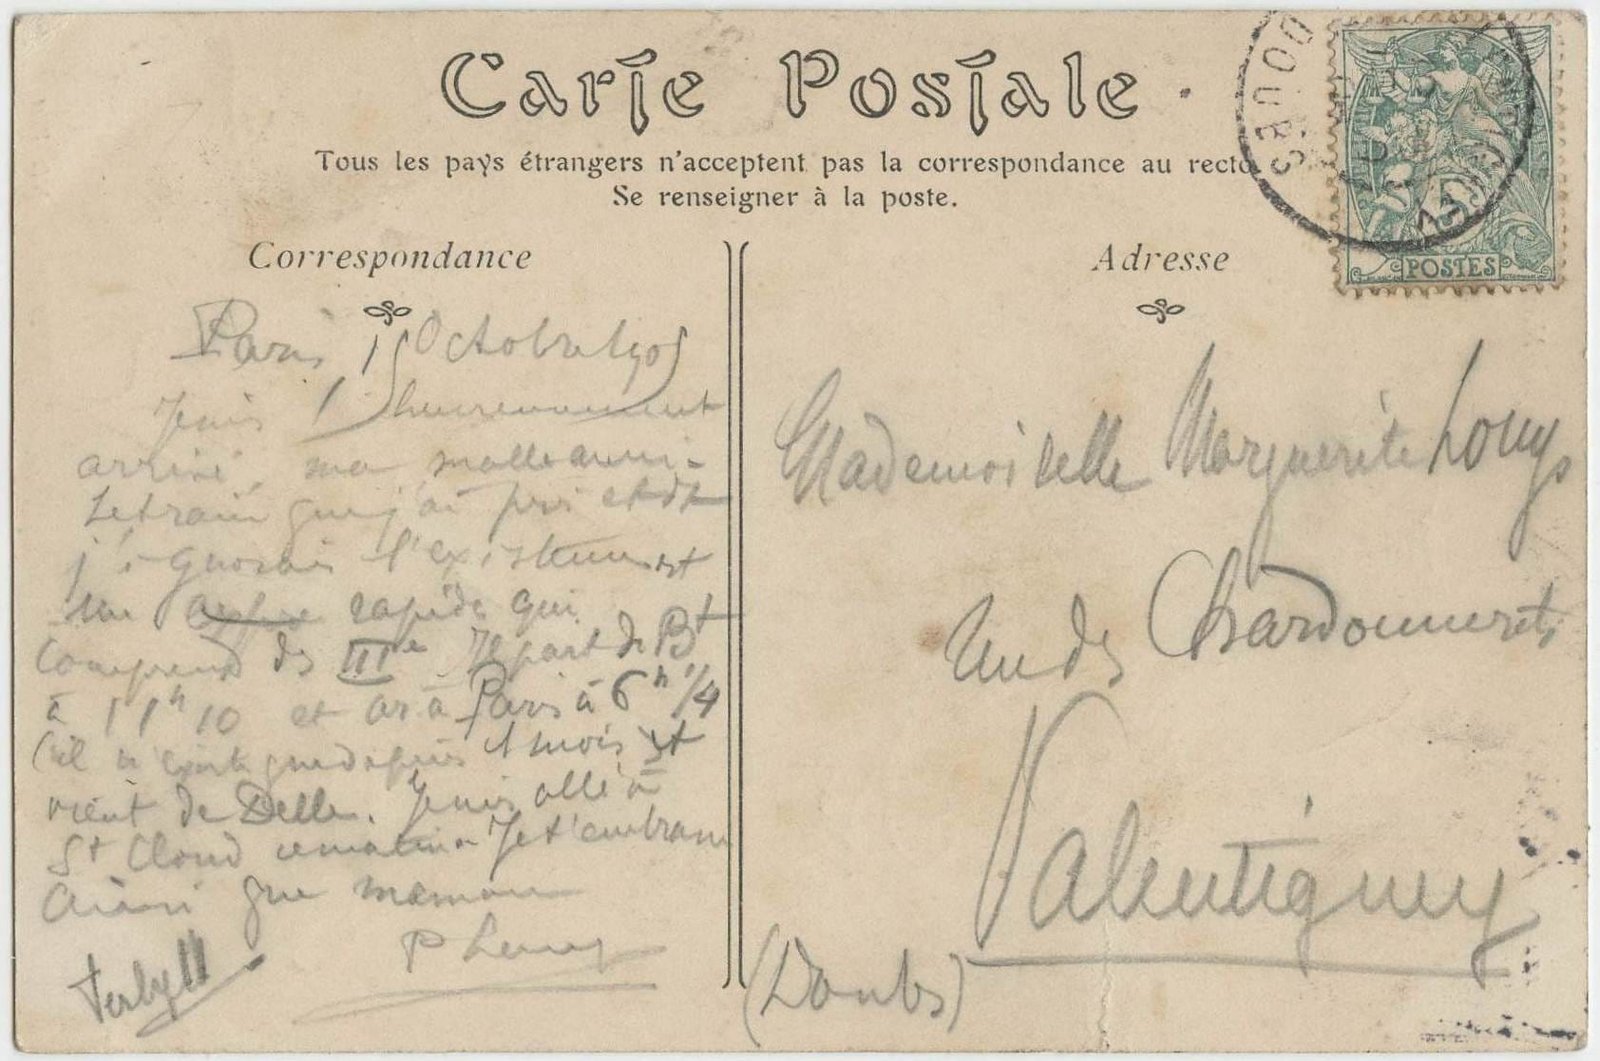 Carte Postale
Tous les pays étrangers n'acceptent pas la correspondance au recto
Se renseigner à la poste.
Correspondance
Paris 15 Octobre 1905
Je suis heureusement
arrivé, ma malle aussi.
Le train que j'ai pris et dt
j'ignorais l'existence est
un rapide qui
comprend des IIIe Il part de Bt
à 11h 10 et ar à Paris à 6h 1/4
(il n'existe que depuis 1 mois et
vient de Delle. Je suis allé à
St Cloud ce matin Je t'embrasse
ainsi que maman
P
Adresse
Mademoiselle Marguerite Louys
rue des Chardonnerets
Valentigney
(Doubs)
POSTES